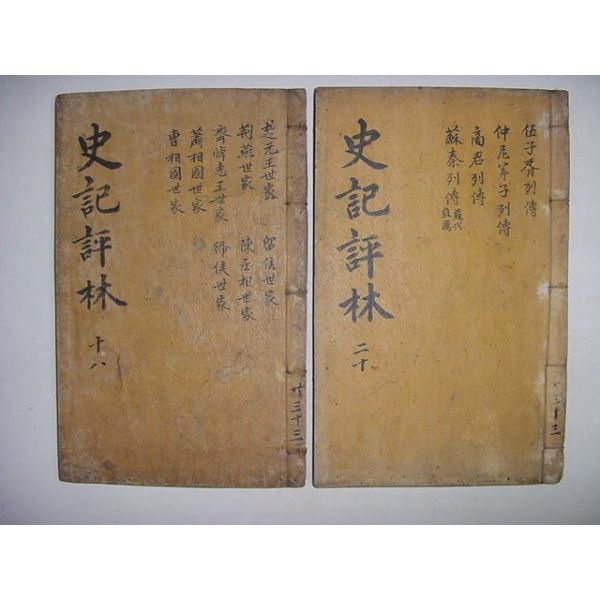 史記評林
十八
楚元王世家
荊燕世家
齊悼惠王世家
蕭相國世家
曹相國世家
留侯世家
陳丞相世家
絳侯世家
三十三
史記評林
二十
伍子胥列傳
仲尼弟子列傳
商君列傳
蘇秦列傳 蘇代 蘇厲